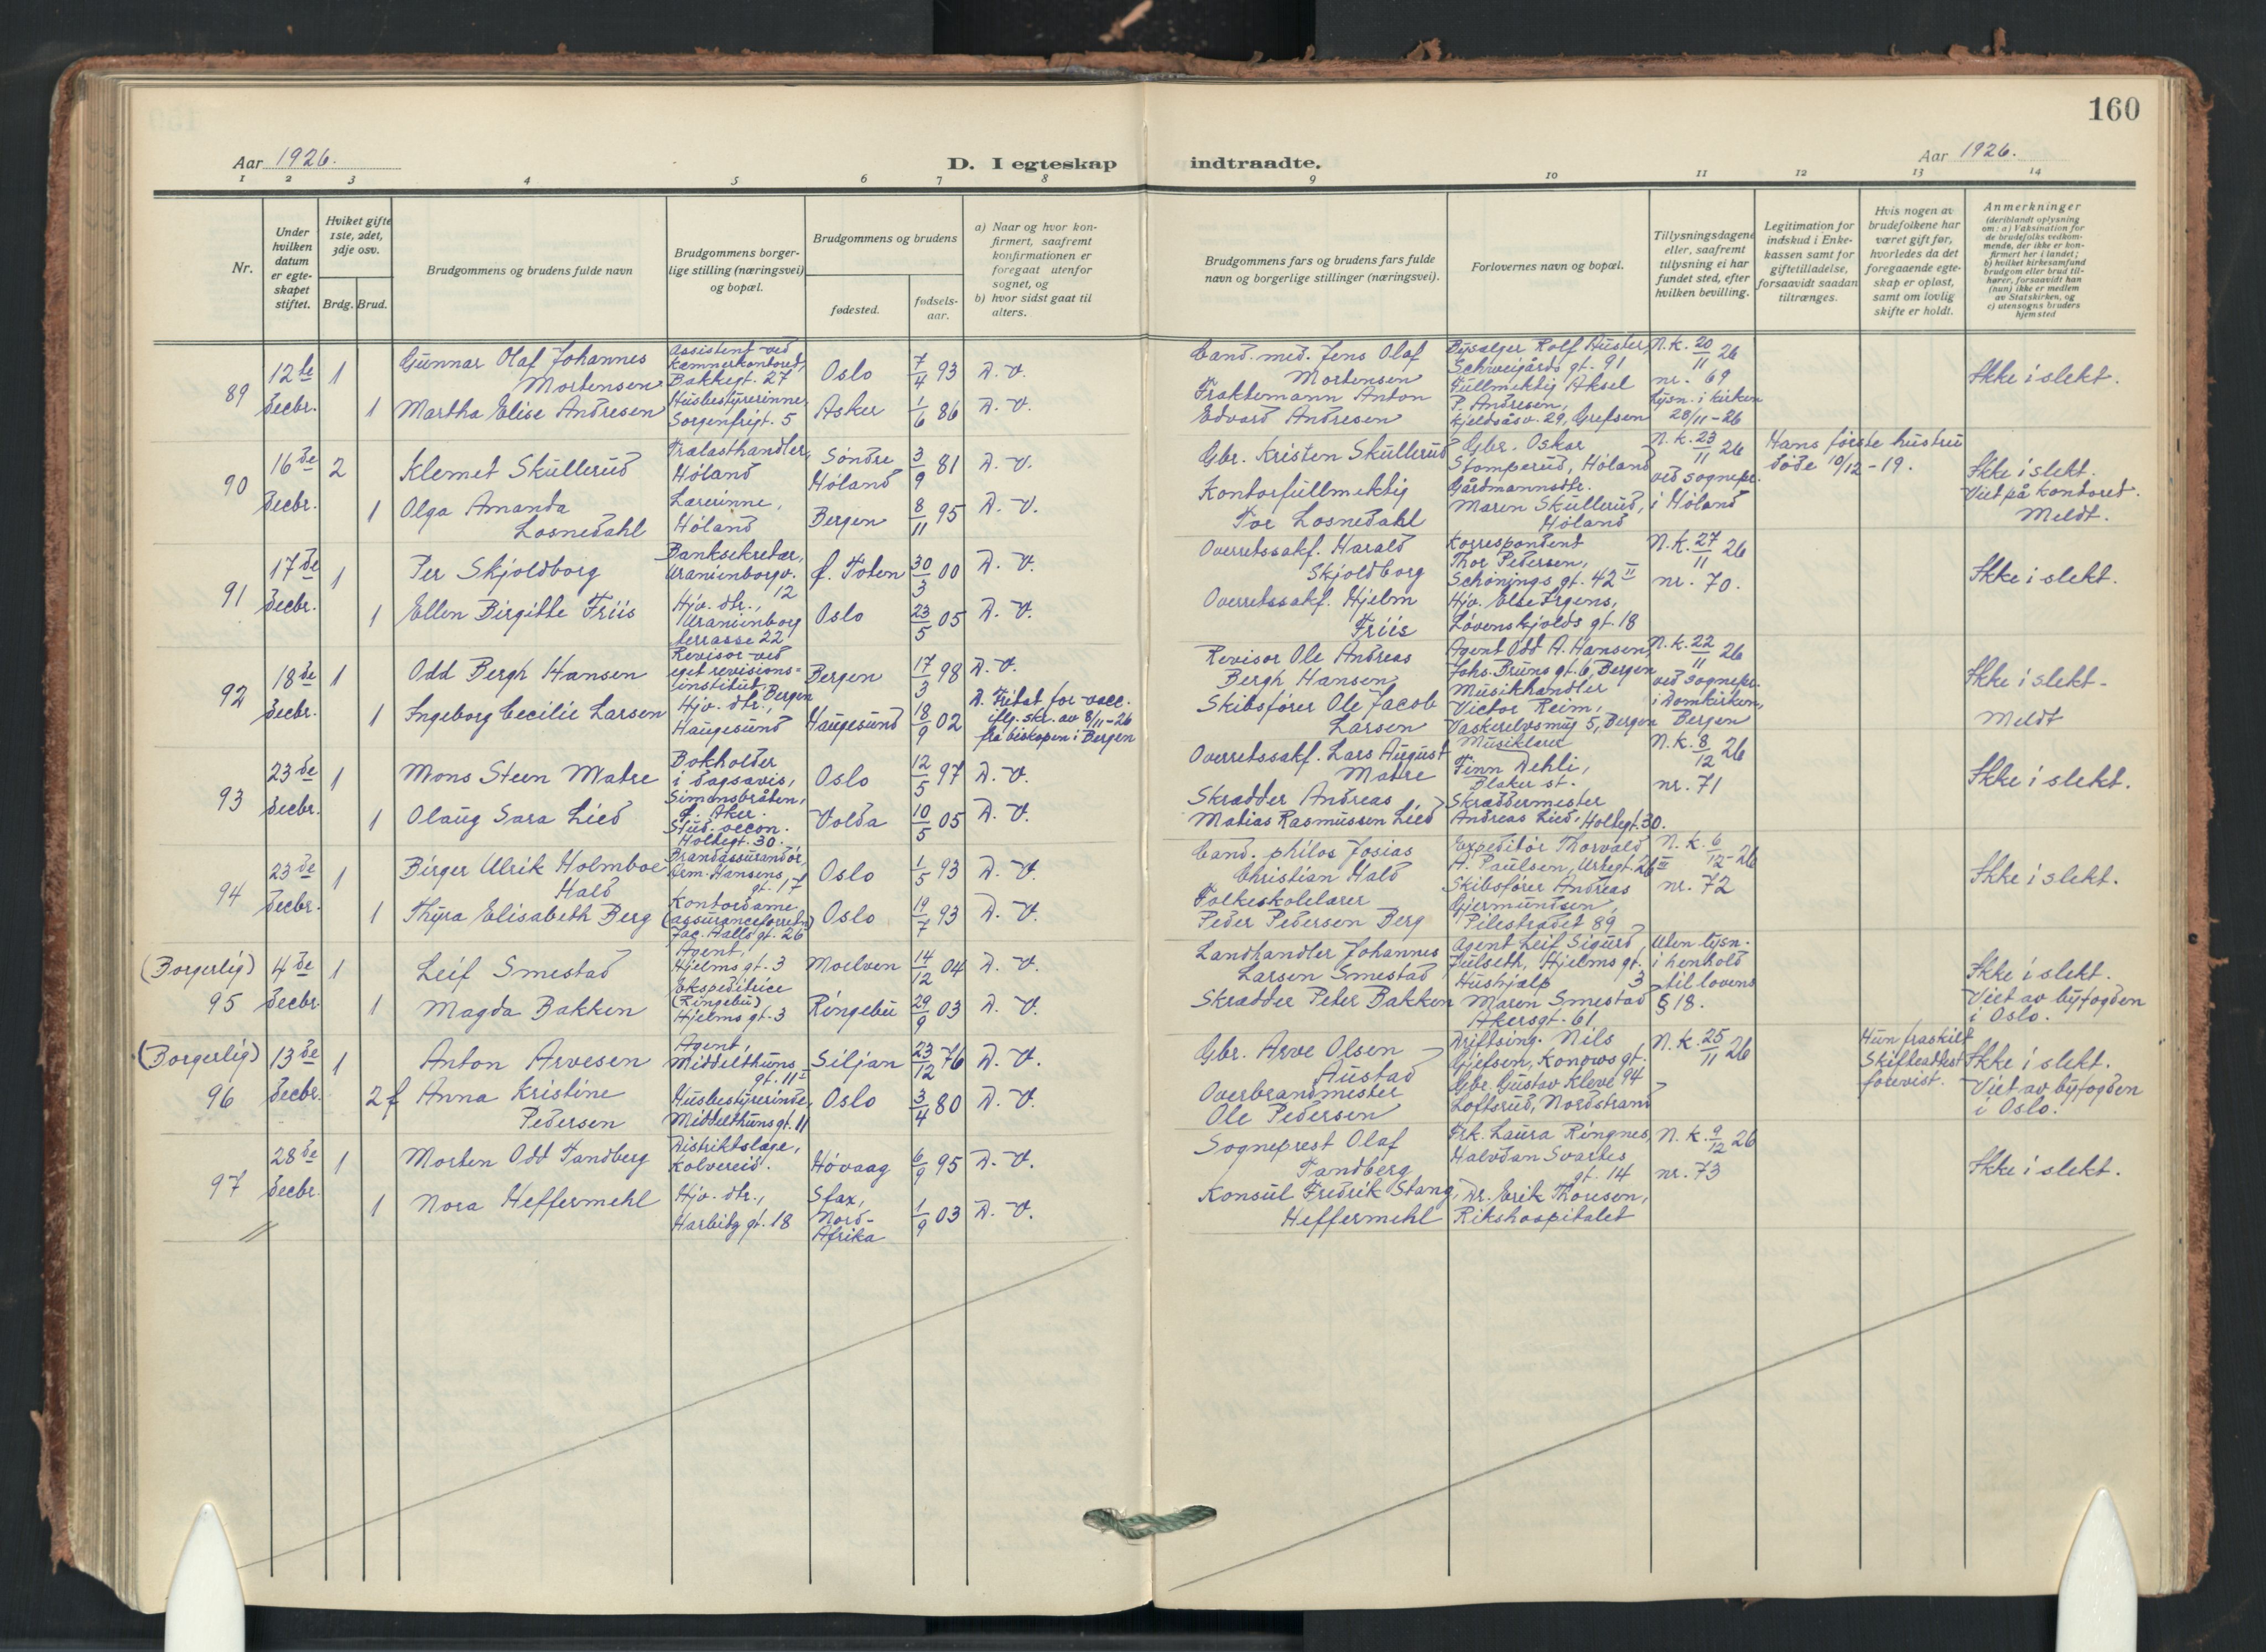 160
Aar 1926.
D. I egteskap indtraadte.
Aar 1926.
1 2 3 4 5 6 7 8 9 10 11 12 13 14
Nr.
Under hvilken datum er egteskapet stiftet.
Hviket gifte 1ste, 2det, 3dje osv.
Brdg. Brud.
Brudgommens og brudens fulde navn
Brudgommens borgerlige stilling (næringsvei) og bopæl.
Brudgommens og brudens
fødested.
fødselsaar.
a) Naar og hvor konfirmert, saafremt konfirmationen er foregaat utenfor sognet, og
b) hvor sidst gaat til alters.
Brudgommens fars og brudens fars fulde navn og borgerlige stillinger (næringsvei).
Forlovernes navn og bopæl.
Tillysningsdagene eller, saafremt tillysning ei har fundet sted, efter hvilken bevilling.
Legitimation for indskud i Enkekassen samt for giftetilladelse, forsaavidt saadan tiltrænges.
Hvis nogen av brudefolkene har været gift før, hvorledes da det foregaaende egteskap er opløst, samt om lovlig skifte er holdt.
Anmerkninger (deriblandt oplysning om: a) Vaksination for de brudefolks vedkommende, der ikke er konfirmert her i landet; b) hvilket kirkesamfund brudgom eller brud tilhører, forsaavidt han (hun) ikke er medlem av Statskirken, og c) utensogns bruders hjemsted
89 12te Decbr. 1 Gunnar Olaf Johannes Mortensen Assistent ved Kemnerkontoret, Bakkegt. 27 Oslo 7/4 93 D. V. Cand. med. Jens Olaf Mortensen Schweigårds gt. 91 N.K. 20/11 26 nr. 69 Ikke i slekt.
1 Martha Elise Andresen Husbestyrerinne, Sorgenfrigt. 5 Asker 1/6 86 D. V. Fraktemann Anton Edvard Andresen Fullmektig Aksel P. Andresen, Kjeldsåsv. 29, Grefsen Lysn. i kirken 28/11-26
90 16de Decbr. 2 Klemet Skullerud Trælasthandler, Høland Søndre Høland 3/9 81 D. V. Gbr. Kristen Skullerud Gbr. Oskar Stomperud, Høland N.K. 23/11 26 ved sognepr. i Høland Hans første hustru døde 10/12-19. Ikke i slekt. Viet på kontoret. Meldt.
1 Olga Amanda Losnedahl Lærerinne, Høland Bergen 8/11 95 D. V. Kontorfullmektig Tor Losnedahl Gårdmannsdtr. Maren Skullerud, Høland
91 17de Decbr. 1 Per Skjoldborg Banksekretær, Uranienborgv. 12 Ø. Toten 30/3 00 D. V. Overretssakf. Harald Skjoldborg Korrespondent Thor Pedersen, Schønings gt. 42 II N.K. 27/11 26 nr. 70. Ikke i slekt.
1 Ellen Birgitte Friis Hjv. dtr., Uranienborg terrasse 22 Oslo 23/5 05 D. V. Overretssakf. Hjelm Friis Hjv. Else Irgens, Løvenskjolds gt. 18
92 18de Decbr. 1 Odd Bergh Hansen Revisor ved eget revisionsinstitut, Bergen Bergen 17/3 98 D. V. Revisor Ole Andreas Bergh Hansen Agent Odd A. Hansen, Johs. Bruns gt. 6, Bergen N.K. 22/11 26 ved sognepr. i Domkirken, Bergen Ikke i slekt-
1 Ingeborg Cecilie Larsen Hjv. dtr., Haugesund Haugesund 18/9 02 D. Fritat for vacc. iflg. skr. av 8/11-26 fra biskopen i Bergen Skibsfører Ole Jacob Larsen Musikhandler Victor Reim, Vaskerelvsmug 5, Bergen Meldt
93 23de Decbr. 1 Mons Steen Matre Bokholder i dagsavis, Simensbråten, Ø. Aker. Oslo 12/5 97 D. V. Overretssakf. Lars August Matre Musiklærer Finn Dehli, Blaker st. N.K. 8/12 26 nr. 71 Ikke i slekt.
1 Olaug Sara Lied Stud. oecon. Holtegt. 30. Volda 10/5 05 D. V. Skrædder Andreas Matias Rasmussen Lied Skræddermester Andreas Lied, Holtegt. 30.
94 23de Decbr. 1 Birger Ulrik Holmboe Hald Brandassurandør, Arm. Hansens gt. 17 Oslo 1/5 93 D. V. Cand. philos Josias Christian Hald Expeditør Thorvald A. Paulsen, Urtegt. 26 III N.K. 6/12-26 nr. 72 Ikke i slekt.
1 Thyra Elisabeth Berg Kontordame (assuranceforretn) Jac. Aalls gt. 26 Oslo 19/7 93 D. V. Folkeskolelærer Peder Pedersen Berg Skibsfører Andreas Gjermundsen, Pilestrædet 89
(Borgerlig) 95 4de Decbr. 1 Leif Smestad Agent, Hjelms gt. 3 Moelven 14/12 04 D. V. Landhandler Johannes Larsen Smestad Agent Leif Sigurd Julseth, Hjelms gt. 3 Uten lysn. i henhold til lovens § 18. Ikke i slekt. Viet av byfogden i Oslo.
1 Magda Bakken Ekspeditrice (Ringebu) Hjelms gt. 3 Ringebu 29/9 03 D. V. Skrædder Peter Bakken Hushjælp Maren Smestad Akersgt. 61
(Borgerlig) 96 13de Decbr. 1 Anton Arvesen Agent, Middelthuns gt. 11 Siljan 23/12 76 D. V. Gbr. Arve Olsen Austad Driftsing. Nils Gjelsen, Konows gt. 94 N.K. 25/11 26 Hun fraskilt Skifteattest forevist. Ikke i slekt. Viet av byfogden i Oslo.
2 f Anna Kristine Pedersen Husbestyrerinde, Middelthuns gt. 11 Oslo 3/4 80 D. V. Overbrandmester Ole Pedersen Gbr. Gustav Kleve Loftsrud, Nordstrand
97 28de Decbr. 1 Morten Odd Tandberg Distriktslæge, Kolvereid. Høvaag 6/9 95 D. V. Sogneprest Olaf Tandberg Frk. Laura Ringnes, Halvdan Svartes gt. 14 N.K. 9/12 26 nr. 73 Ikke i slekt.
1 Nora Heffermehl Hjv. dtr., Harbitz gt. 18 Sfax, Nord-Afrika 1/9 03 D. V. Konsul Fredrik Stang Heffermehl Dr. Erik Thoresen, Rikshospitalet